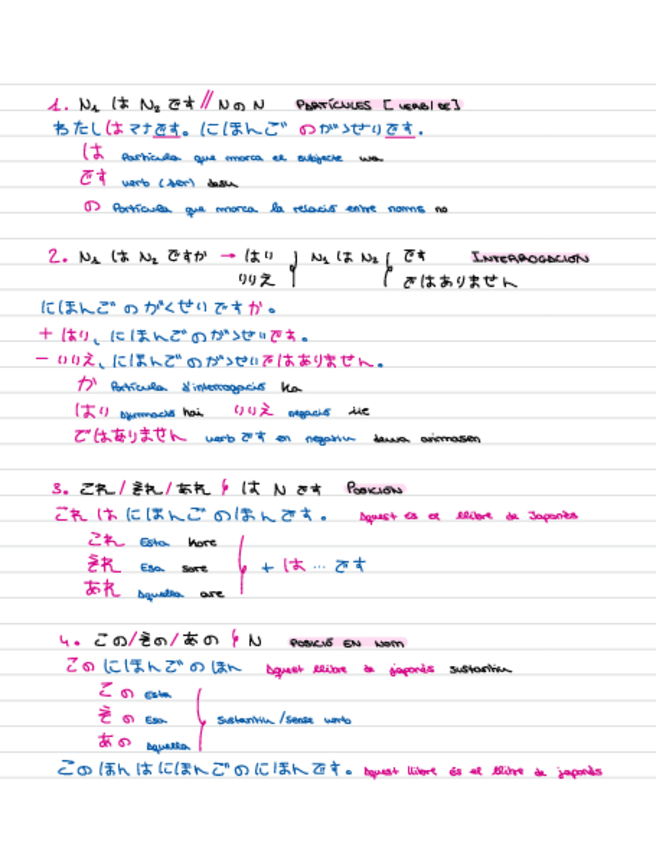 1. N₁ は N₂ です // N の N PARTÍCULES [VERB/DE]
わたしは マナです。にほんご のがくせいです.
は Partícula que marca el subjecte wa
です verb (ser) desu
の Partícula que marca la relació entre noms no
2. N₁ は N₂ ですか → はい } N₁ は N₂ { です INTERROGACION
いいえ ではありません
にほんごのがくせいですか。
+ はい、にほんごのがくせいです。
- いいえ、にほんごのがくせいではありません。
か Partícula d'interrogació ka
はい afirmació hai いいえ negació iie
ではありません verb です en negatiu dewa arimasen
3. これ/それ/あれ } は N です POSICIÓN
これ は にほんごのほんです。 Aquest és el llibre de Japonès
これ Esta kore
それ Esa sore } + は … です
あれ Aquella are
4. この/その/あの } N POSICIÓ EN NOM
この にほんごのほん Aquest llibre de japonès sustantiu
この Esta
その Esa } Sustantiu/sense verb
あの Aquella
このほんはにほんごのにほんです。 Aquest llibre és el llibre de japonès